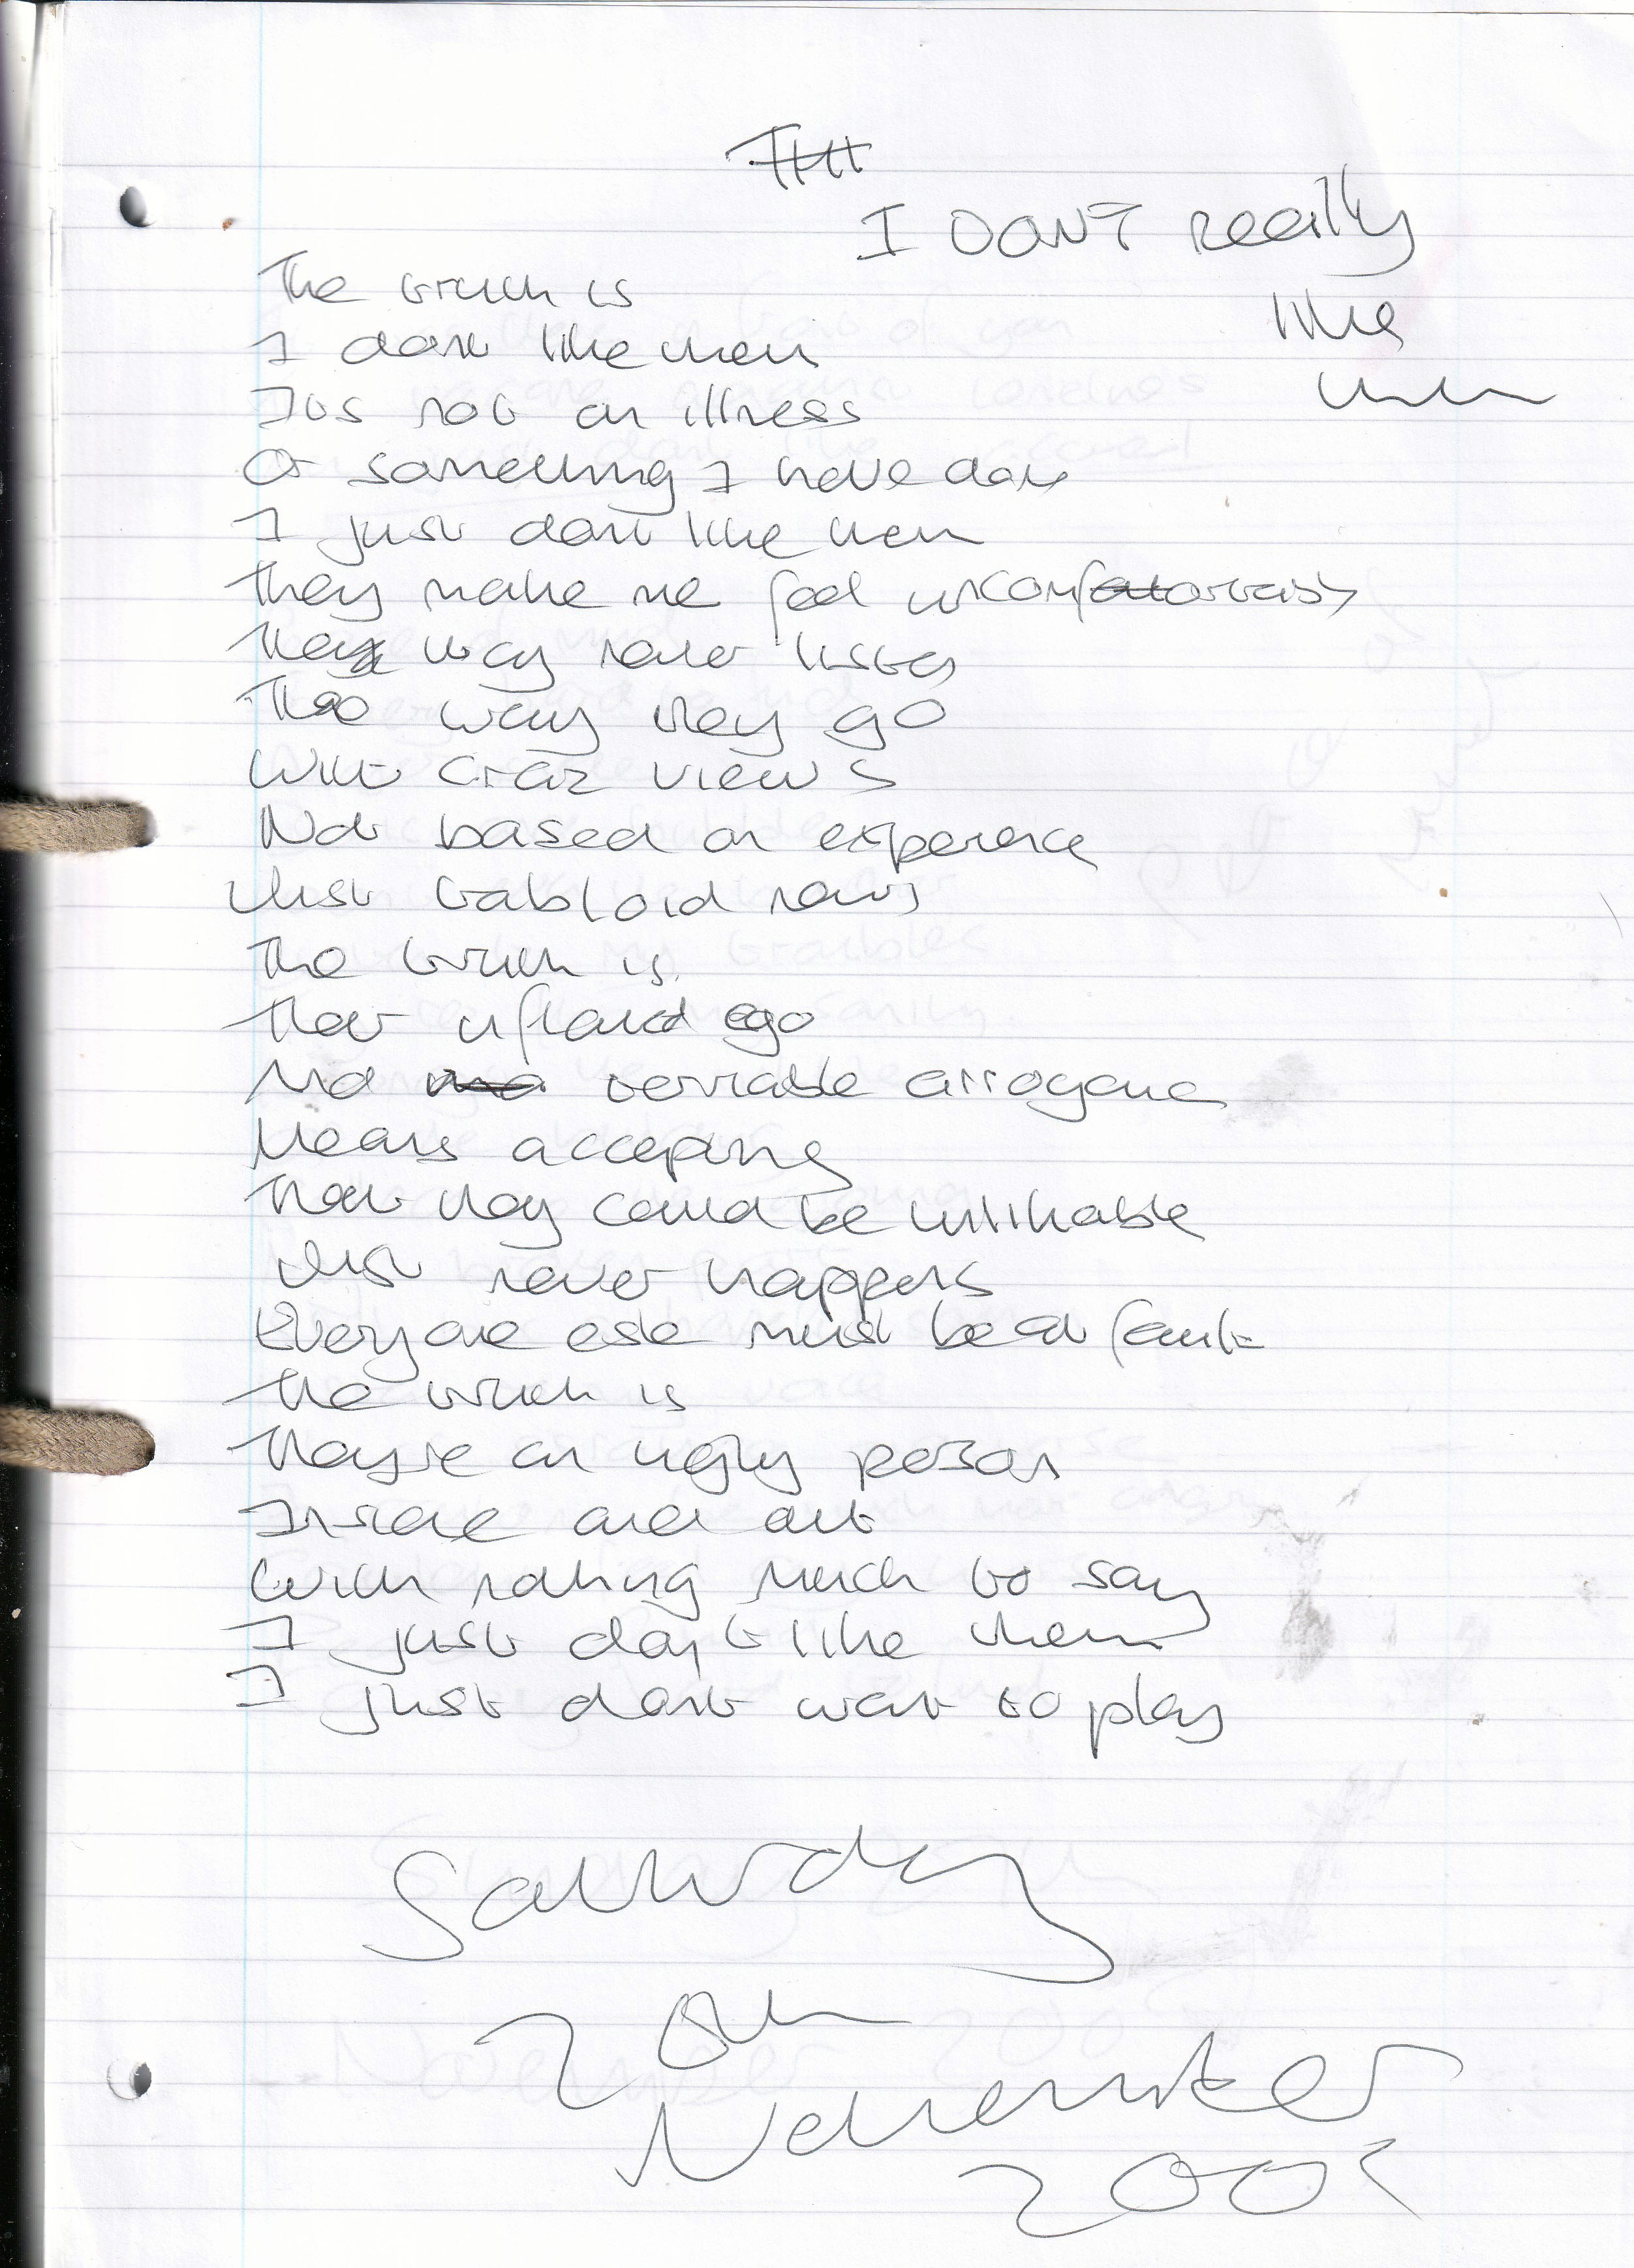 I DONT really
like
them
The truth is
I dont like them
Its not an illness
Or something I have done
I just dont like them
They make me feel uncomfortably
The way never listen
The way they go
With craz views
Not based on experence
Just tabloid news
The truth is
Their inflated ego
And terriable arrogance
Means accepting
That they could be unlikable
Just never happens
Everyone else must be at fault
The truth is
They're an ugly person
Inside and out
With nothing much to say
I just don't like them
I just dont want to play
Saturday
20th
November